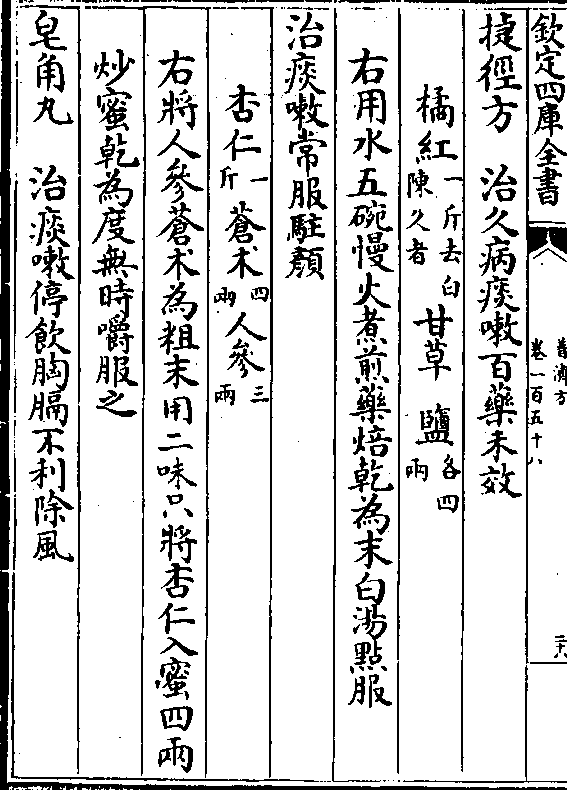 欽定四庫全書
普濟方
卷一百五十八
捷徑方　治久病痰嗽百藥未效
橘紅一斤去白陳久者　甘草　鹽各四兩
右用水五碗慢火煮煎藥焙乾為末白湯點服
治痰嗽常服駐顏
杏仁一斤　蒼术四兩　人參三兩
右將人參蒼术為粗末用二味只將杏仁入蜜四兩
炒蜜乾為度無時嚼服之
皂角丸　治痰嗽停飲胸膈不利除風